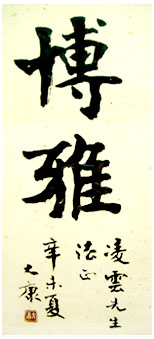 博雅
凌雲先生
法正
辛未夏
大康